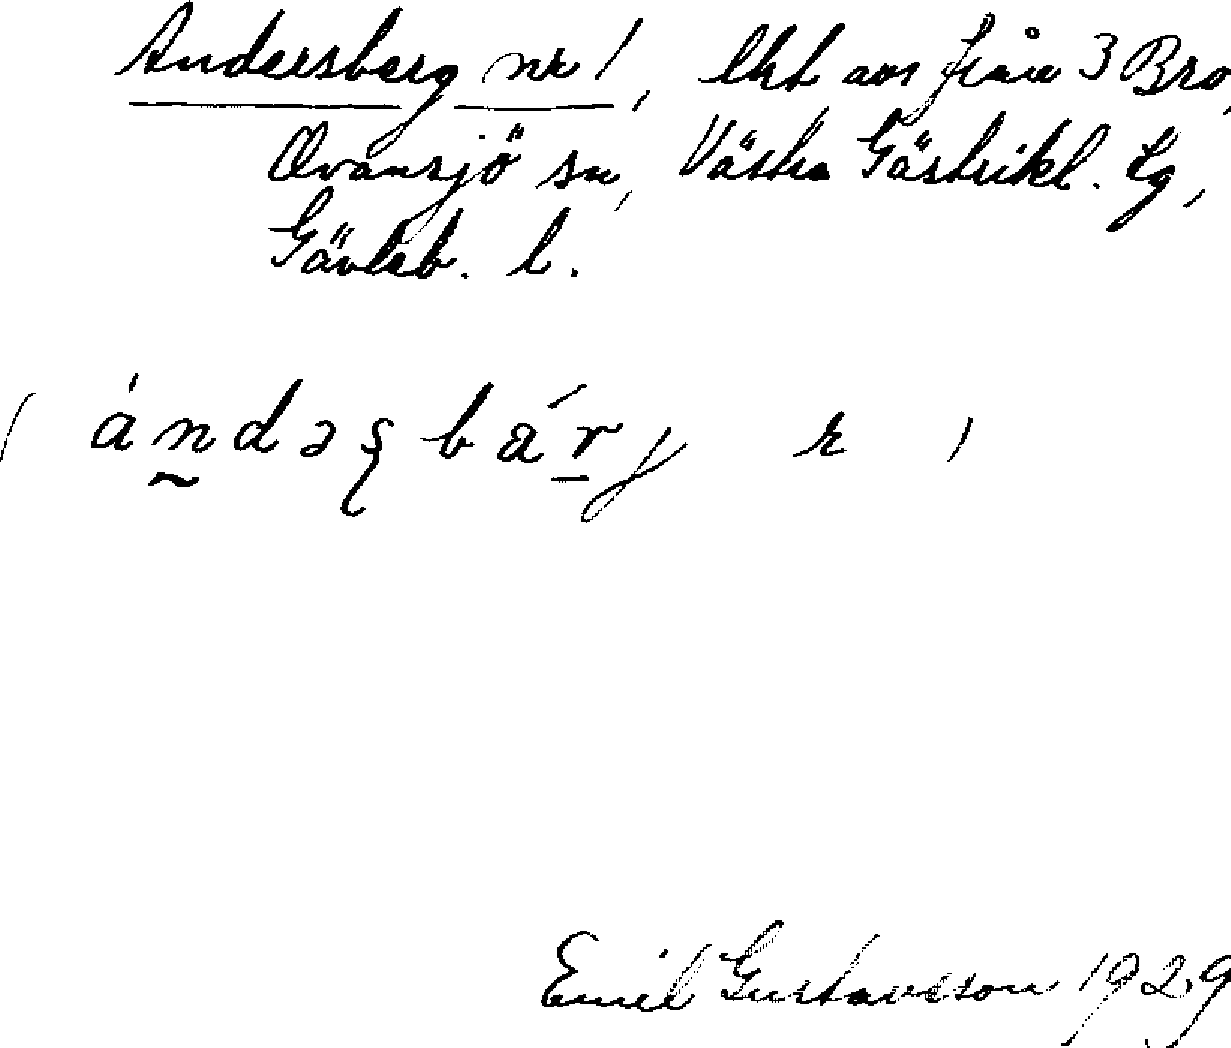 Andersberg nr 1, lht avs från 3 Bro,
Ovansjö sn, Västra Gästrikl. tg,
Gävleb. l.
Emil Gustavsson 1929